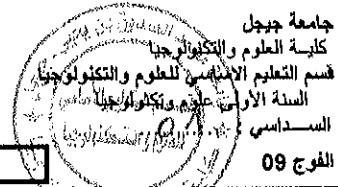 جامعة جيجل
كلية العلوم والتكنولوجيا
قسم التعليم الأساسي للعلوم والتكنولوجيا
السنة الأولى علوم وتكنولوجيا
الســداسي 01
الفوج 09